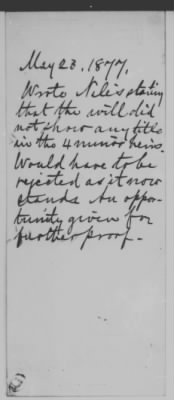 May 23. 1877.
Wrote Niles stating
that the will did
not show any title
in the 4 minor heirs.
Would have to be
rejected as it now
stands An oppor-
tunity given for
further proof.-